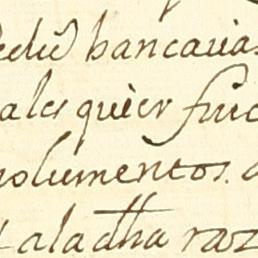 bancaria
ales quier fuic
olumentos
aladha raz